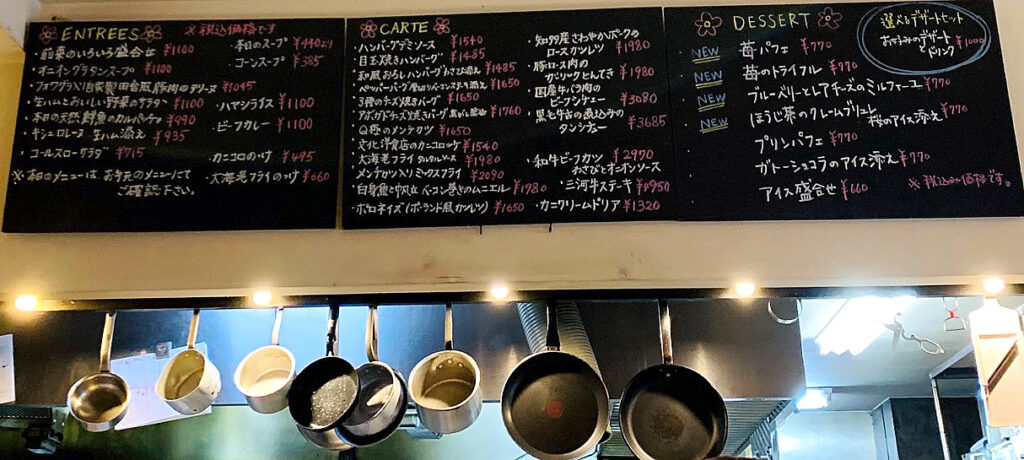 ENTREES
※税込価格です
・前菜のいろいろ盛合せ ¥1100
・本日のスープ ¥440より
・オニオングラタンスープ ¥1100
・コーンスープ ¥385
・フォアグラ入り自家製田舎風豚肉のテリーヌ ¥1045
・生ハムとおいしい野菜のサラダ ¥1100
・ハヤシライス ¥1100
・本日の天然鮮魚のカルパッチョ ¥990
・ビーフカレー ¥1100
・キッシュロレーヌ 生ハム添え ¥935
・コールスローサラダ ¥715
・カニコロのっけ ¥495
※和のメニューは、お手元のメニューにて
ご確認下さい。
・大海老フライのっけ ¥660
CARTE
・ハンバーグデミソース ¥1540
・目玉焼きハンバーグ ¥1485
・和風おろしハンバーグわさび添え ¥1485
・ペッパーバーグ 厚切りベーコン添え ¥1650
・3種のチーズ焼きバーグ ¥1650
・アボカドチーズ焼きバーグ ¥1760
・メンチカツ ¥1650
・文化洋食店のカニコロッケ ¥1540
・大海老フライ タルタルソース ¥1980
・メンチカツ入りミックスフライ ¥2090
・白身魚と帆立 ベーコン巻きのムニエル ¥1980
・ボロネイズ(ポーランド風カツレツ) ¥1650
・知多産さわやかポークの
ロースカツレツ ¥1980
・豚ロース肉の
ガーリックとんてき ¥1980
・国産牛バラ肉の
ビーフシチュー ¥3080
・黒毛牛舌の煮込みの
タンシチュー ¥3685
・和牛ビーフカツ ¥2970
わさびとオニオンソース
・三河牛ステーキ ¥4950
・カニクリームドリア ¥1320
DESSERT
選べるデザートセット
お好みのデザート
と
ドリンク ¥1000
NEW 苺パフェ ¥770
NEW 苺のトライフル ¥770
NEW ブルーベリーとレアチーズのミルフィーユ ¥770
NEW ほうじ茶のクレームブリュレ
桜のアイス添え ¥770
プリンパフェ ¥770
ガトーショコラのアイス添え ¥770
アイス盛合せ ¥660
※税込み価格です。